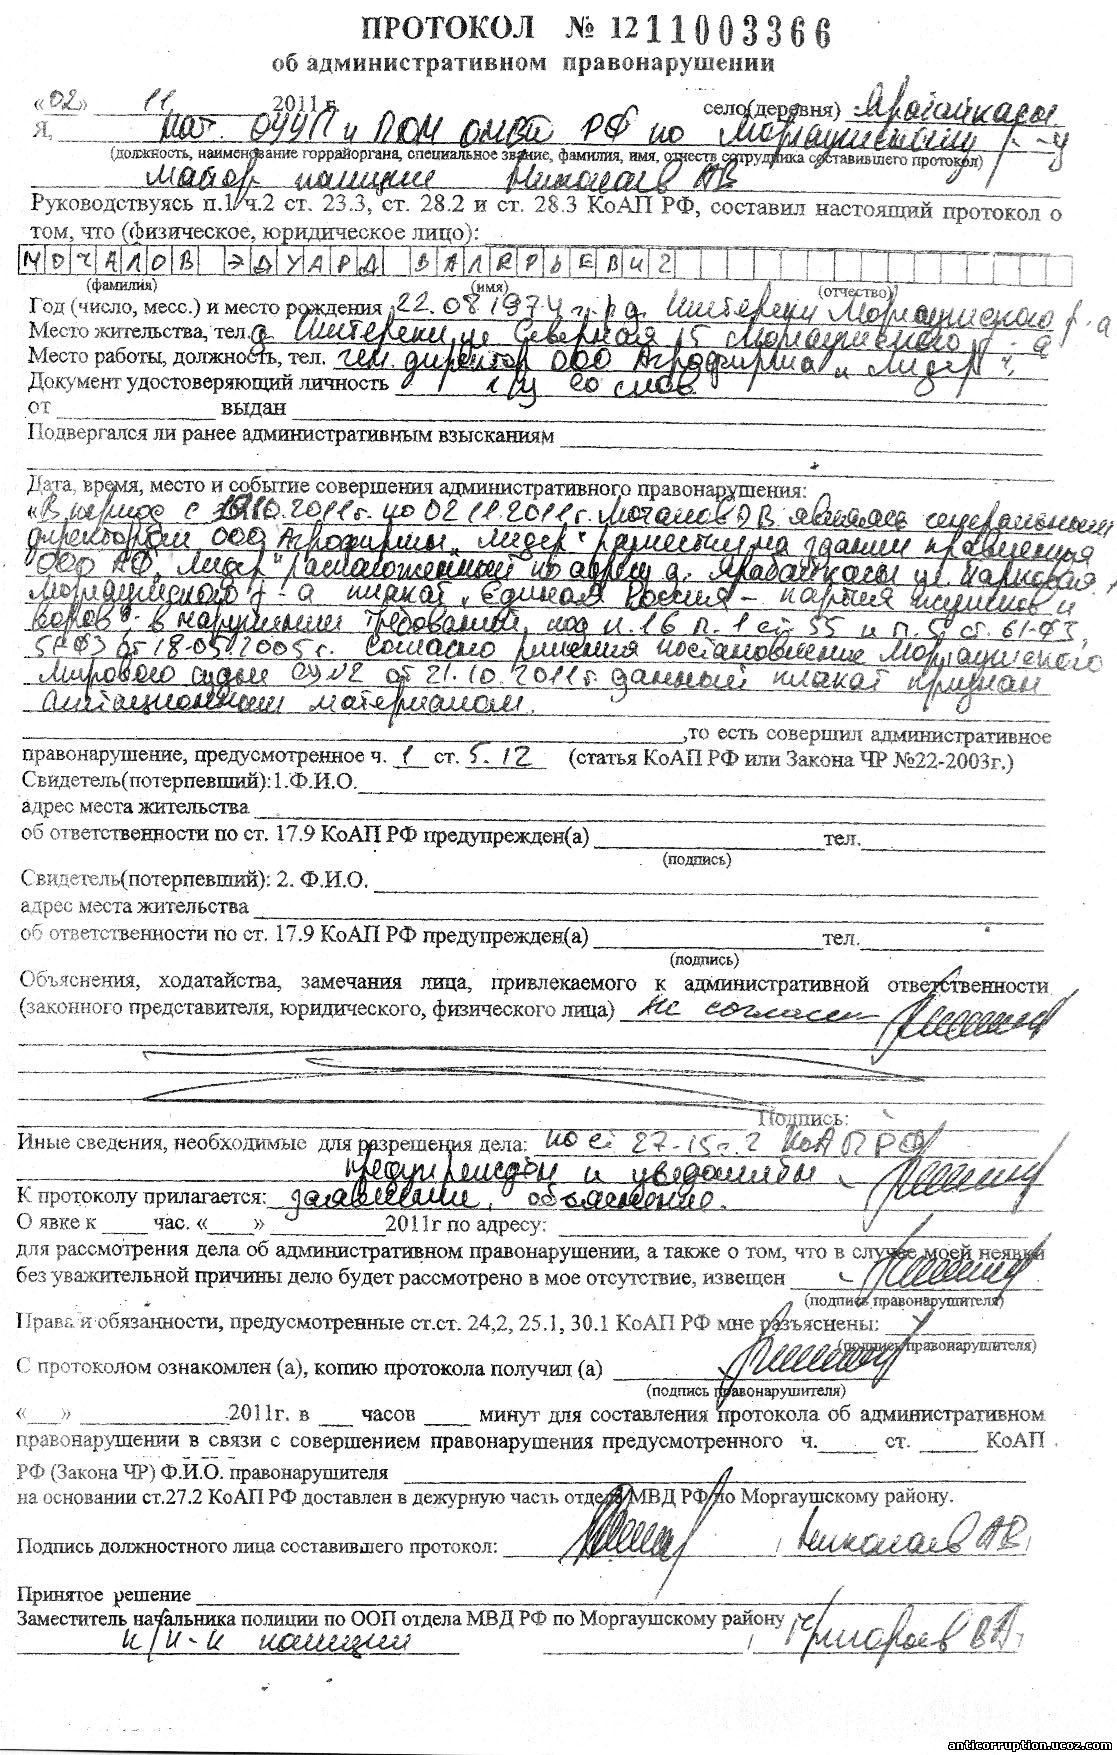 ПРОТОКОЛ № 1211003366
об административном правонарушении
«02» 11 2011 г. село(деревня) Ярабайкасы
Я, нач. ОУУП и ПДН ОМВД РФ по Моргаушскому р-у
(должность, наименование горрайоргана, специальное звание, фамилия, имя, отчеств сотрудника составившего протокол)
майор полиции Николаев АВ
Руководствуясь п.1 ч.2 ст. 23.3, ст. 28.2 и ст. 28.3 КоАП РФ, составил настоящий протокол о
том, что (физическое, юридическое лицо):
МОЧАЛОВ ЭДУАРД ВАЛЕРЬЕВИЧ
(фамилия) (имя) (отчество)
Год (число, месс.) и место рождения 22.08.1974 г.р. д. Иштереки Моргаушского р-а
Место жительства, тел. д. Иштереки ул. Северная 15 Моргаушского р-а
Место работы, должность, тел. ген. директор ООО Агрофирма "Лидер"
Документ удостоверяющий личность л/у со слов
от выдан
Подвергался ли ранее административным взысканиям
Дата, время, место и событие совершения административного правонарушения:
«В период с .10.2011г. по 02.11.2011г. Мочалов Э В являясь генеральным
директором ООО Агрофирмы "Лидер" разместил на здании правления
ООО АФ "Лидер" расположенный по адресу д. Ярабайкасы ул. Парковая, 1
Моргаушского р-а плакат "Единая Россия – партия жуликов и
воров" в нарушении требований, под п. 16 п. 1 ст 55 и п. 5 ст. 61-ФЗ,
51-ФЗ от 18.05.2005г. Согласно решения постановление Моргаушского
Мирового судьи СУ№2 от 21.10.2011г. данный плакат признан
агитационным материалом.
,то есть совершил административное
правонарушение, предусмотренное ч. 1 ст. 5.12 (статья КоАП РФ или Закона ЧР №22-2003г.)
Свидетель(потерпевший):1.Ф.И.О.
адрес места жительства
об ответственности по ст. 17.9 КоАП РФ предупрежден(а) тел.
(подпись)
Свидетель(потерпевший): 2. Ф.И.О.
адрес места жительства
об ответственности по ст. 17.9 КоАП РФ предупрежден(а) тел.
(подпись)
Объяснения, ходатайства, замечания лица, привлекаемого к административной ответственности
(законного представителя, юридического, физического лица) не согласен
Подпись:
Иные сведения, необходимые для разрешения дела: по ст 27-15 ч. 2 КоАП РФ
предупрежден и уведомлен
К протоколу прилагается: заявление, объяснение.
О явке к час. « » 2011г по адресу:
для рассмотрения дела об административном правонарушении, а также о том, что в случае моей неявки
без уважительной причины дело будет рассмотрено в мое отсутствие, извещен
(подпись правонарушителя)
Права и обязанности, предусмотренные ст.ст. 24,2, 25.1, 30.1 КоАП РФ мне разъяснены:
(подпись правонарушителя)
С протоколом ознакомлен (а), копию протокола получил (а)
(подпись правонарушителя)
« » 2011г. в часов минут для составления протокола об административном
правонарушении в связи с совершением правонарушения предусмотренного ч. ст. КоАП
РФ (Закона ЧР) Ф.И.О. правонарушителя
на основании ст.27.2 КоАП РФ доставлен в дежурную часть отдела МВД РФ по Моргаушскому району.
Подпись должностного лица составившего протокол: Николаев АВ
Принятое решение
Заместитель начальника полиции по ООП отдела МВД РФ по Моргаушскому району
п/п-к полиции Григорьев ВА
anticorruption.ucoz.com